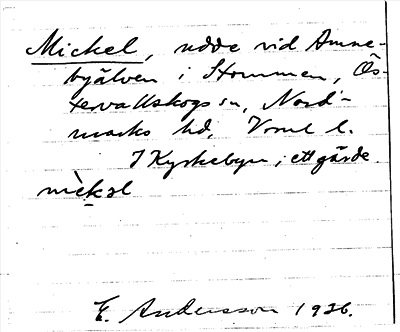 Mickel, udde vid Åmne-
hjälven i Hommen, Ös-
tervallskogs sn, Nord-
marks hd, Vrml l.
I Kyrkebyn, i ett gärde.
mìck̩əl
E. Andersson 1936.